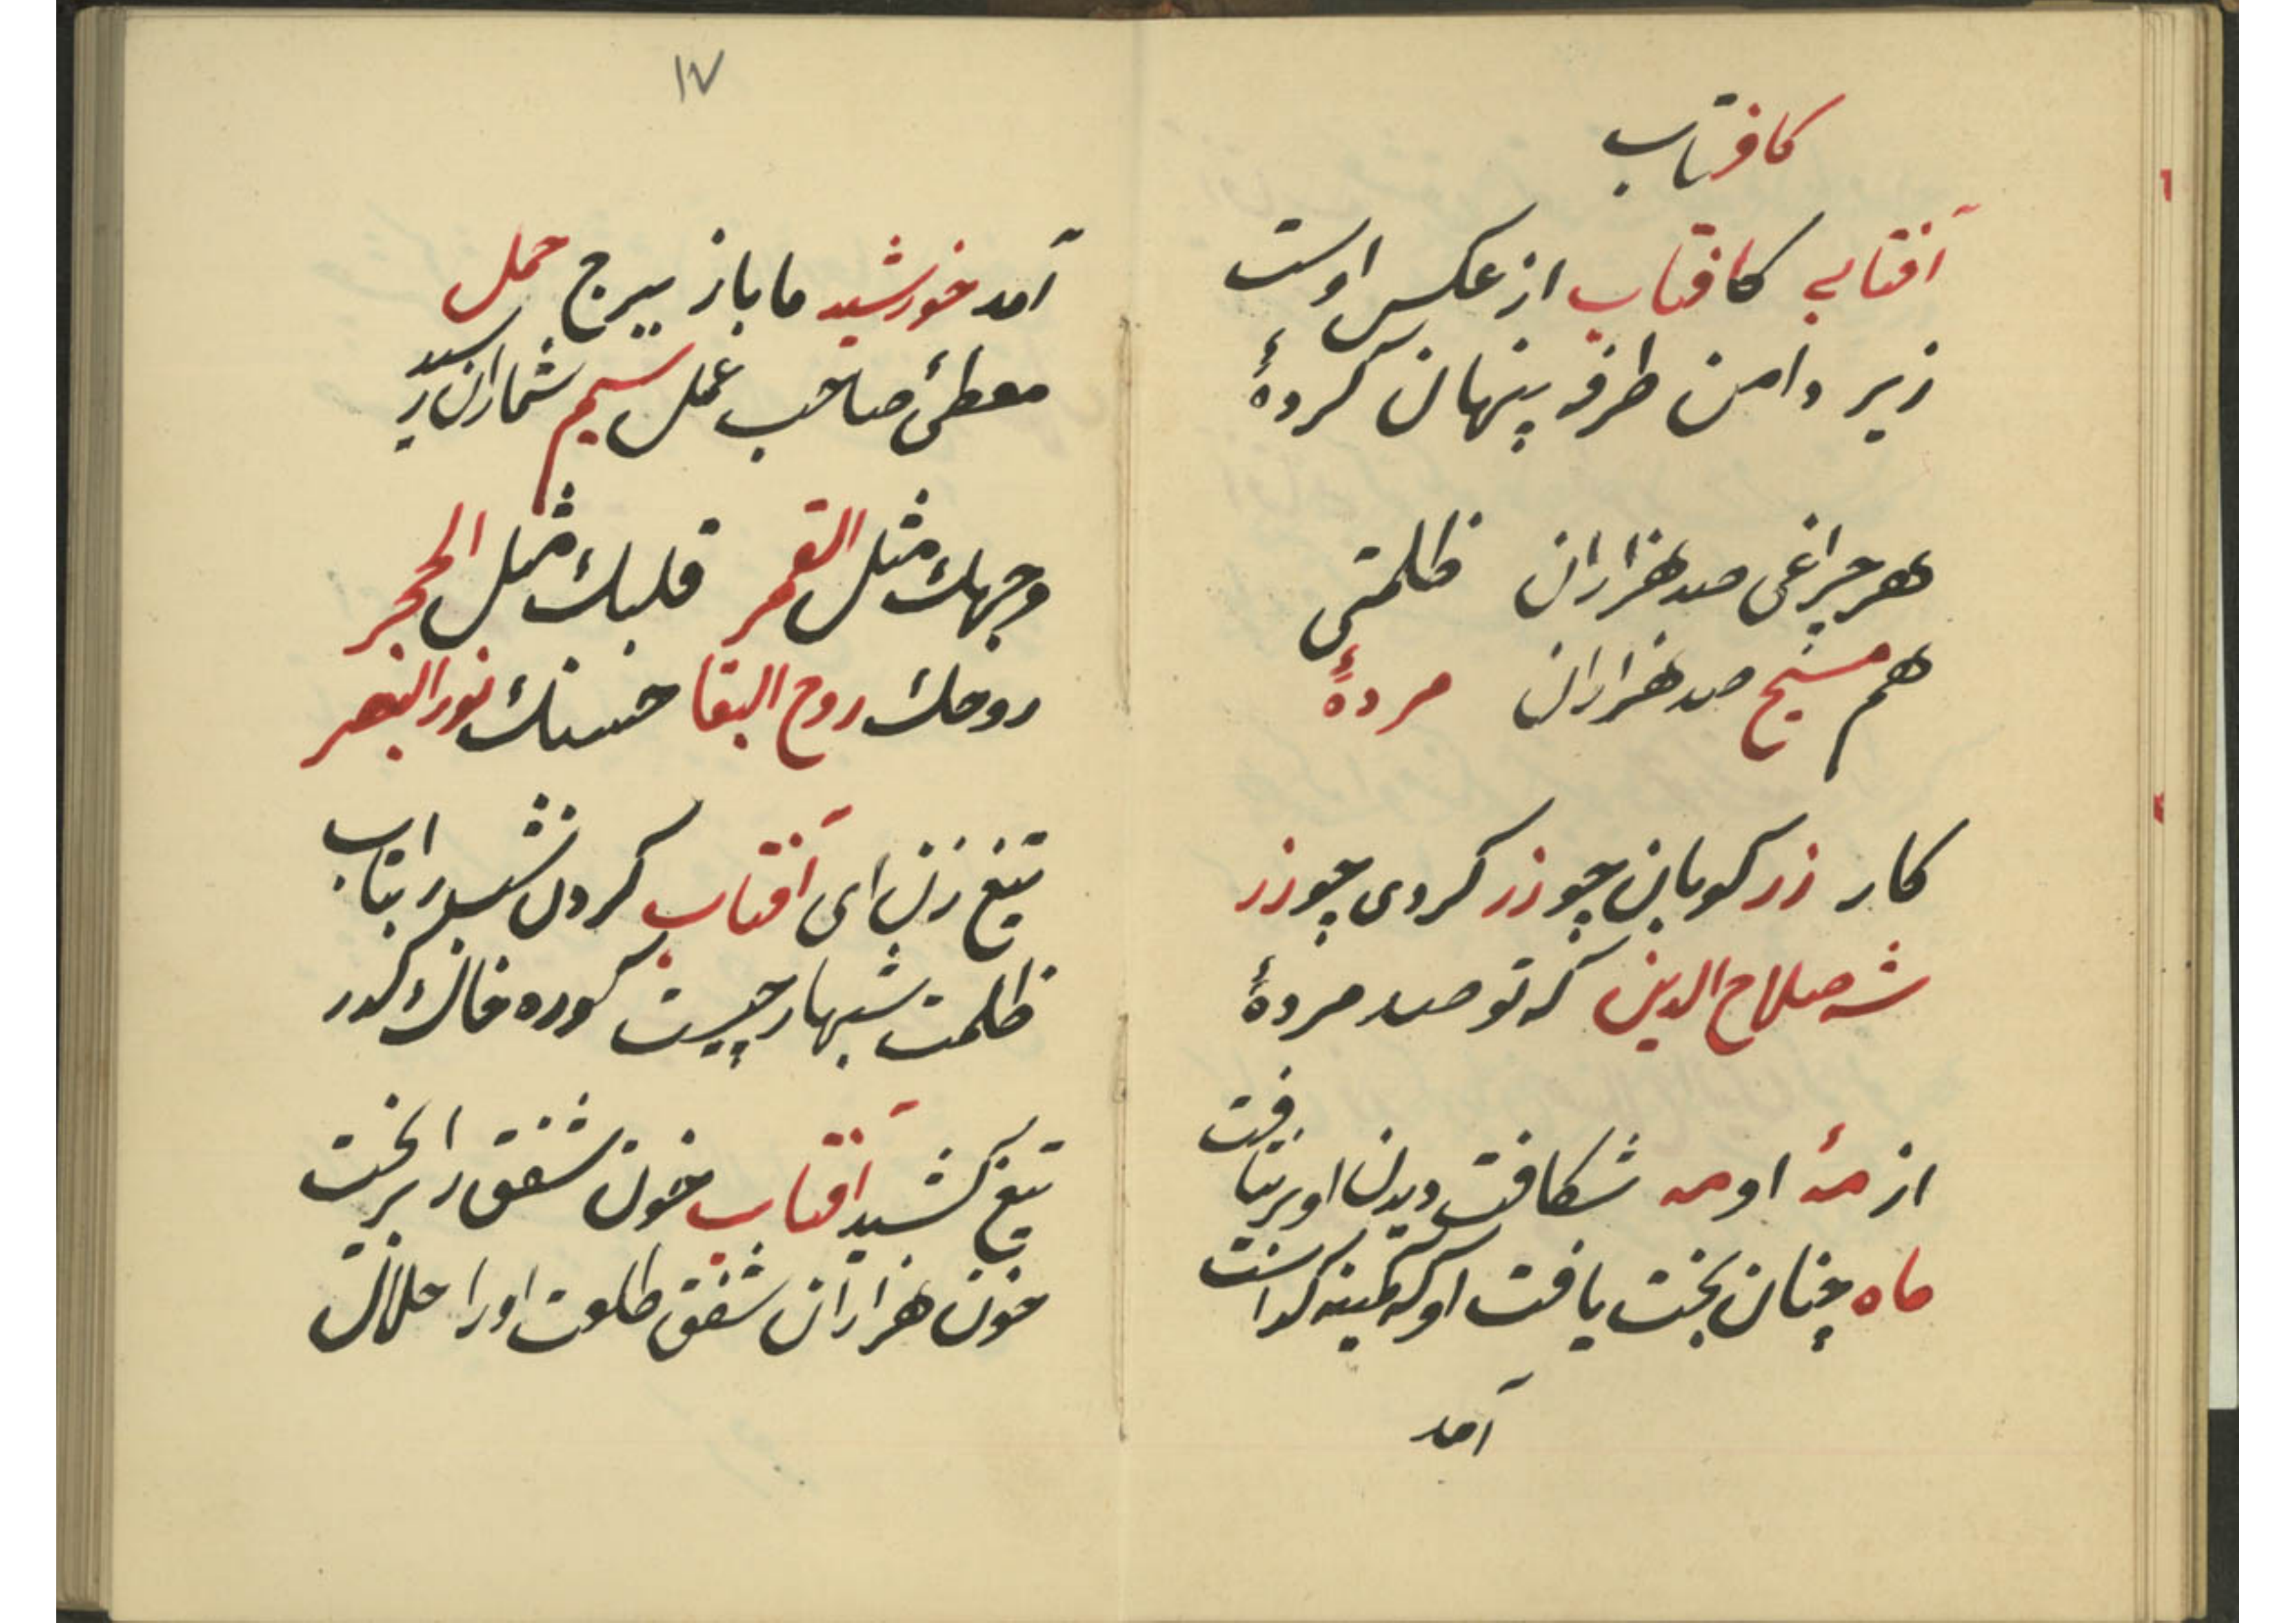 کافتاب
آفتابی کافتاب از عکس اوست
زیر دامن طرفه پنهان کردهٔ
هر چراغی صد هزاران ظلمتی
هم مسیح صد هزاران مردهٔ
کار زرکوبان چو زر کردی چو زر
شه صلاح الدین که تو صد مردهٔ
از مهٔ او مه شکافت دیدن او برنتافت
ماه چنان بخت یافت او که کمینه گداست
آمد
١٧
آمد خورشید ما باز ببرج حمل
معطئ صاحب عمل سیم شماران رسید
وجهك مثل القمر قلبك مثل الحجر
روحك روح البقا حسنك نور البصر
تیغ زن ای آفتاب گردن شب را بتاب
ظلمت شبها ز چیست کوره خاك کدر
تیغ کشید آفتاب خون شفق را بریخت
خون هزاران شفق طلعت او را حلال